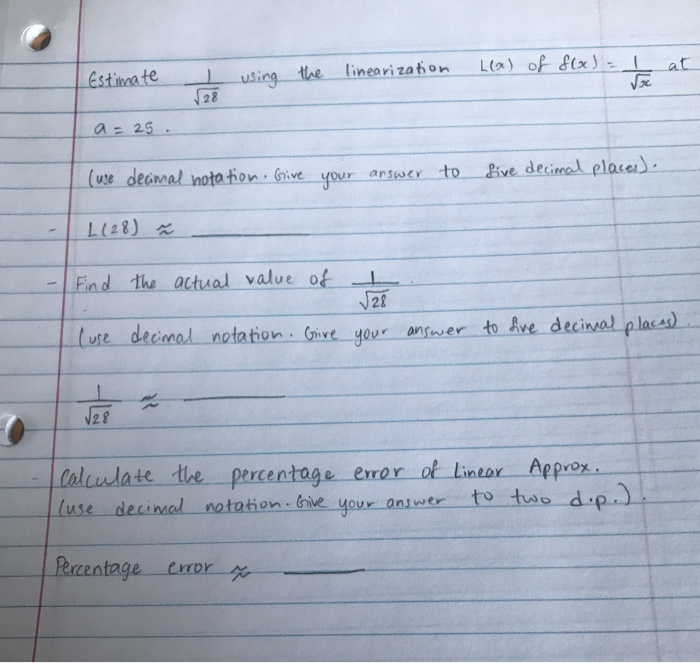 Estimate 1/√28 using the linearization L(x) of f(x) = 1/√x at
a = 25.
(use decimal notation. Give your answer to five decimal places).
- L(28) ≈ ________
- Find the actual value of 1/√28.
(use decimal notation. Give your answer to five decimal places)
1/√28 ≈ ________
- Calculate the percentage error of Linear Approx.
(use decimal notation. Give your answer to two d.p.).
Percentage error ≈ ________